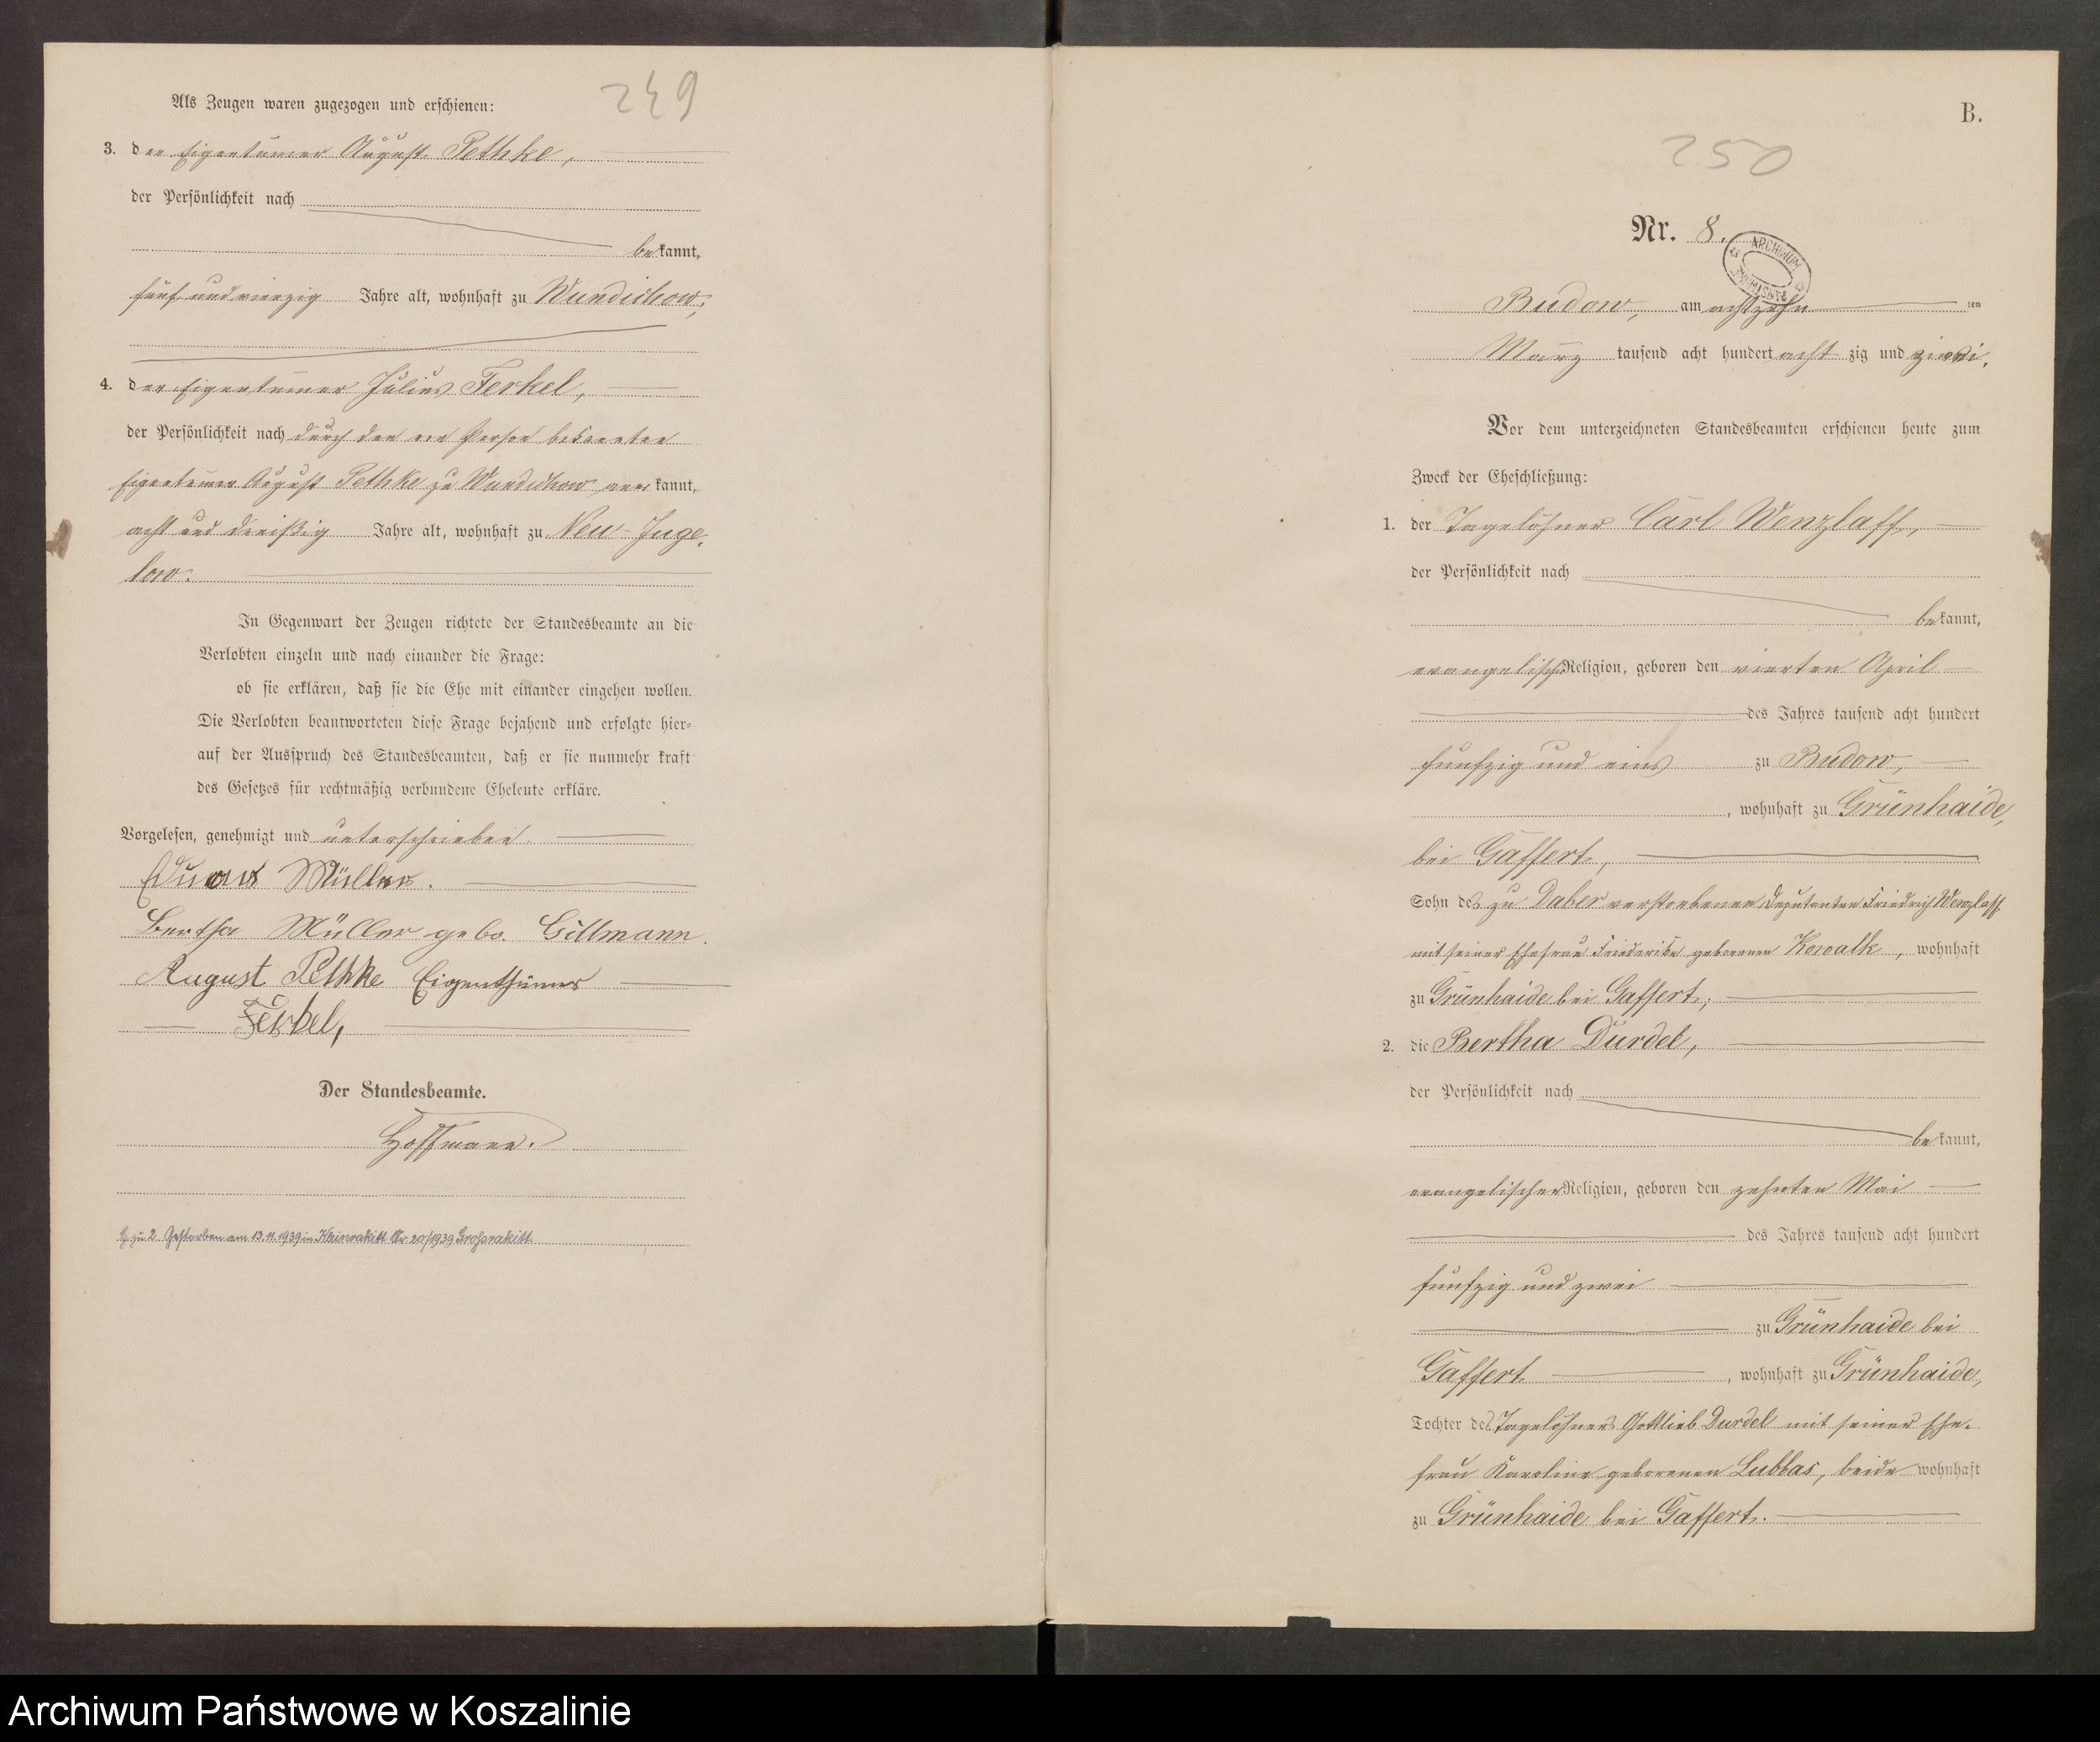 249
Als Zeugen waren zugezogen und erschienen:
3. der Eigentümer August Pethke,
der Persönlichkeit nach
bekannt,
fünf und vierzig Jahre alt, wohnhaft zu Wundichow,
4. der Eigentümer Julius Ferkel,
der Persönlichkeit nach durch den von Person bekannten
Eigentümer August Pethke zu Wundichow anerkannt,
acht und dreißig Jahre alt, wohnhaft zu Neu-Juge-
low.
In Gegenwart der Zeugen richtete der Standesbeamte an die
Verlobten einzeln und nach einander die Frage:
ob sie erklären, daß sie die Ehe mit einander eingehen wollen.
Die Verlobten beantworteten diese Frage bejahend und erfolgte hier-
auf der Ausspruch des Standesbeamten, daß er sie nunmehr kraft
des Gesetzes für rechtmäßig verbundene Eheleute erkläre.
Vorgelesen, genehmigt und unterschrieben.
Eduard Müller.
Bertha Müller geb. Gillmann.
August Pethke Eigenthümer
Ferkel,
Der Standesbeamte.
Hoffmann.
zu 2 Gestorben am 13.11.1939 in Kleinrakitt Nr. 20/1939 Großrakitt
B.
250
Nr. 8.
ARCHIWUM
Budow, am achtzehn ten
März tausend acht hundert acht zig und zwei.
Vor dem unterzeichneten Standesbeamten erschienen heute zum
Zweck der Eheschließung:
1. der Tagelöhner Carl Wenzlaff,
der Persönlichkeit nach
bekannt,
evangelischer Religion, geboren den vierten April
des Jahres tausend acht hundert
fünfzig und eins zu Budow,
, wohnhaft zu Grünhaide,
bei Gaffert,
Sohn des zu Daber verstorbenen Deputanten Friedrich Wenzlaff
mit seiner Ehefrau Friederike geborenen Kowalk, wohnhaft
zu Grünhaide bei Gaffert;
2. die Bertha Durdel,
der Persönlichkeit nach
bekannt,
evangelischer Religion, geboren den zehnten Mai
des Jahres tausend acht hundert
fünfzig und zwei
zu Grünhaide bei
Gaffert, wohnhaft zu Grünhaide,
Tochter des Tagelöhners Gottlieb Durdel mit seiner Ehe-
frau Karoline geborenen Lubbas, beide wohnhaft
zu Grünhaide bei Gaffert.
Archiwum Państwowe w Koszalinie